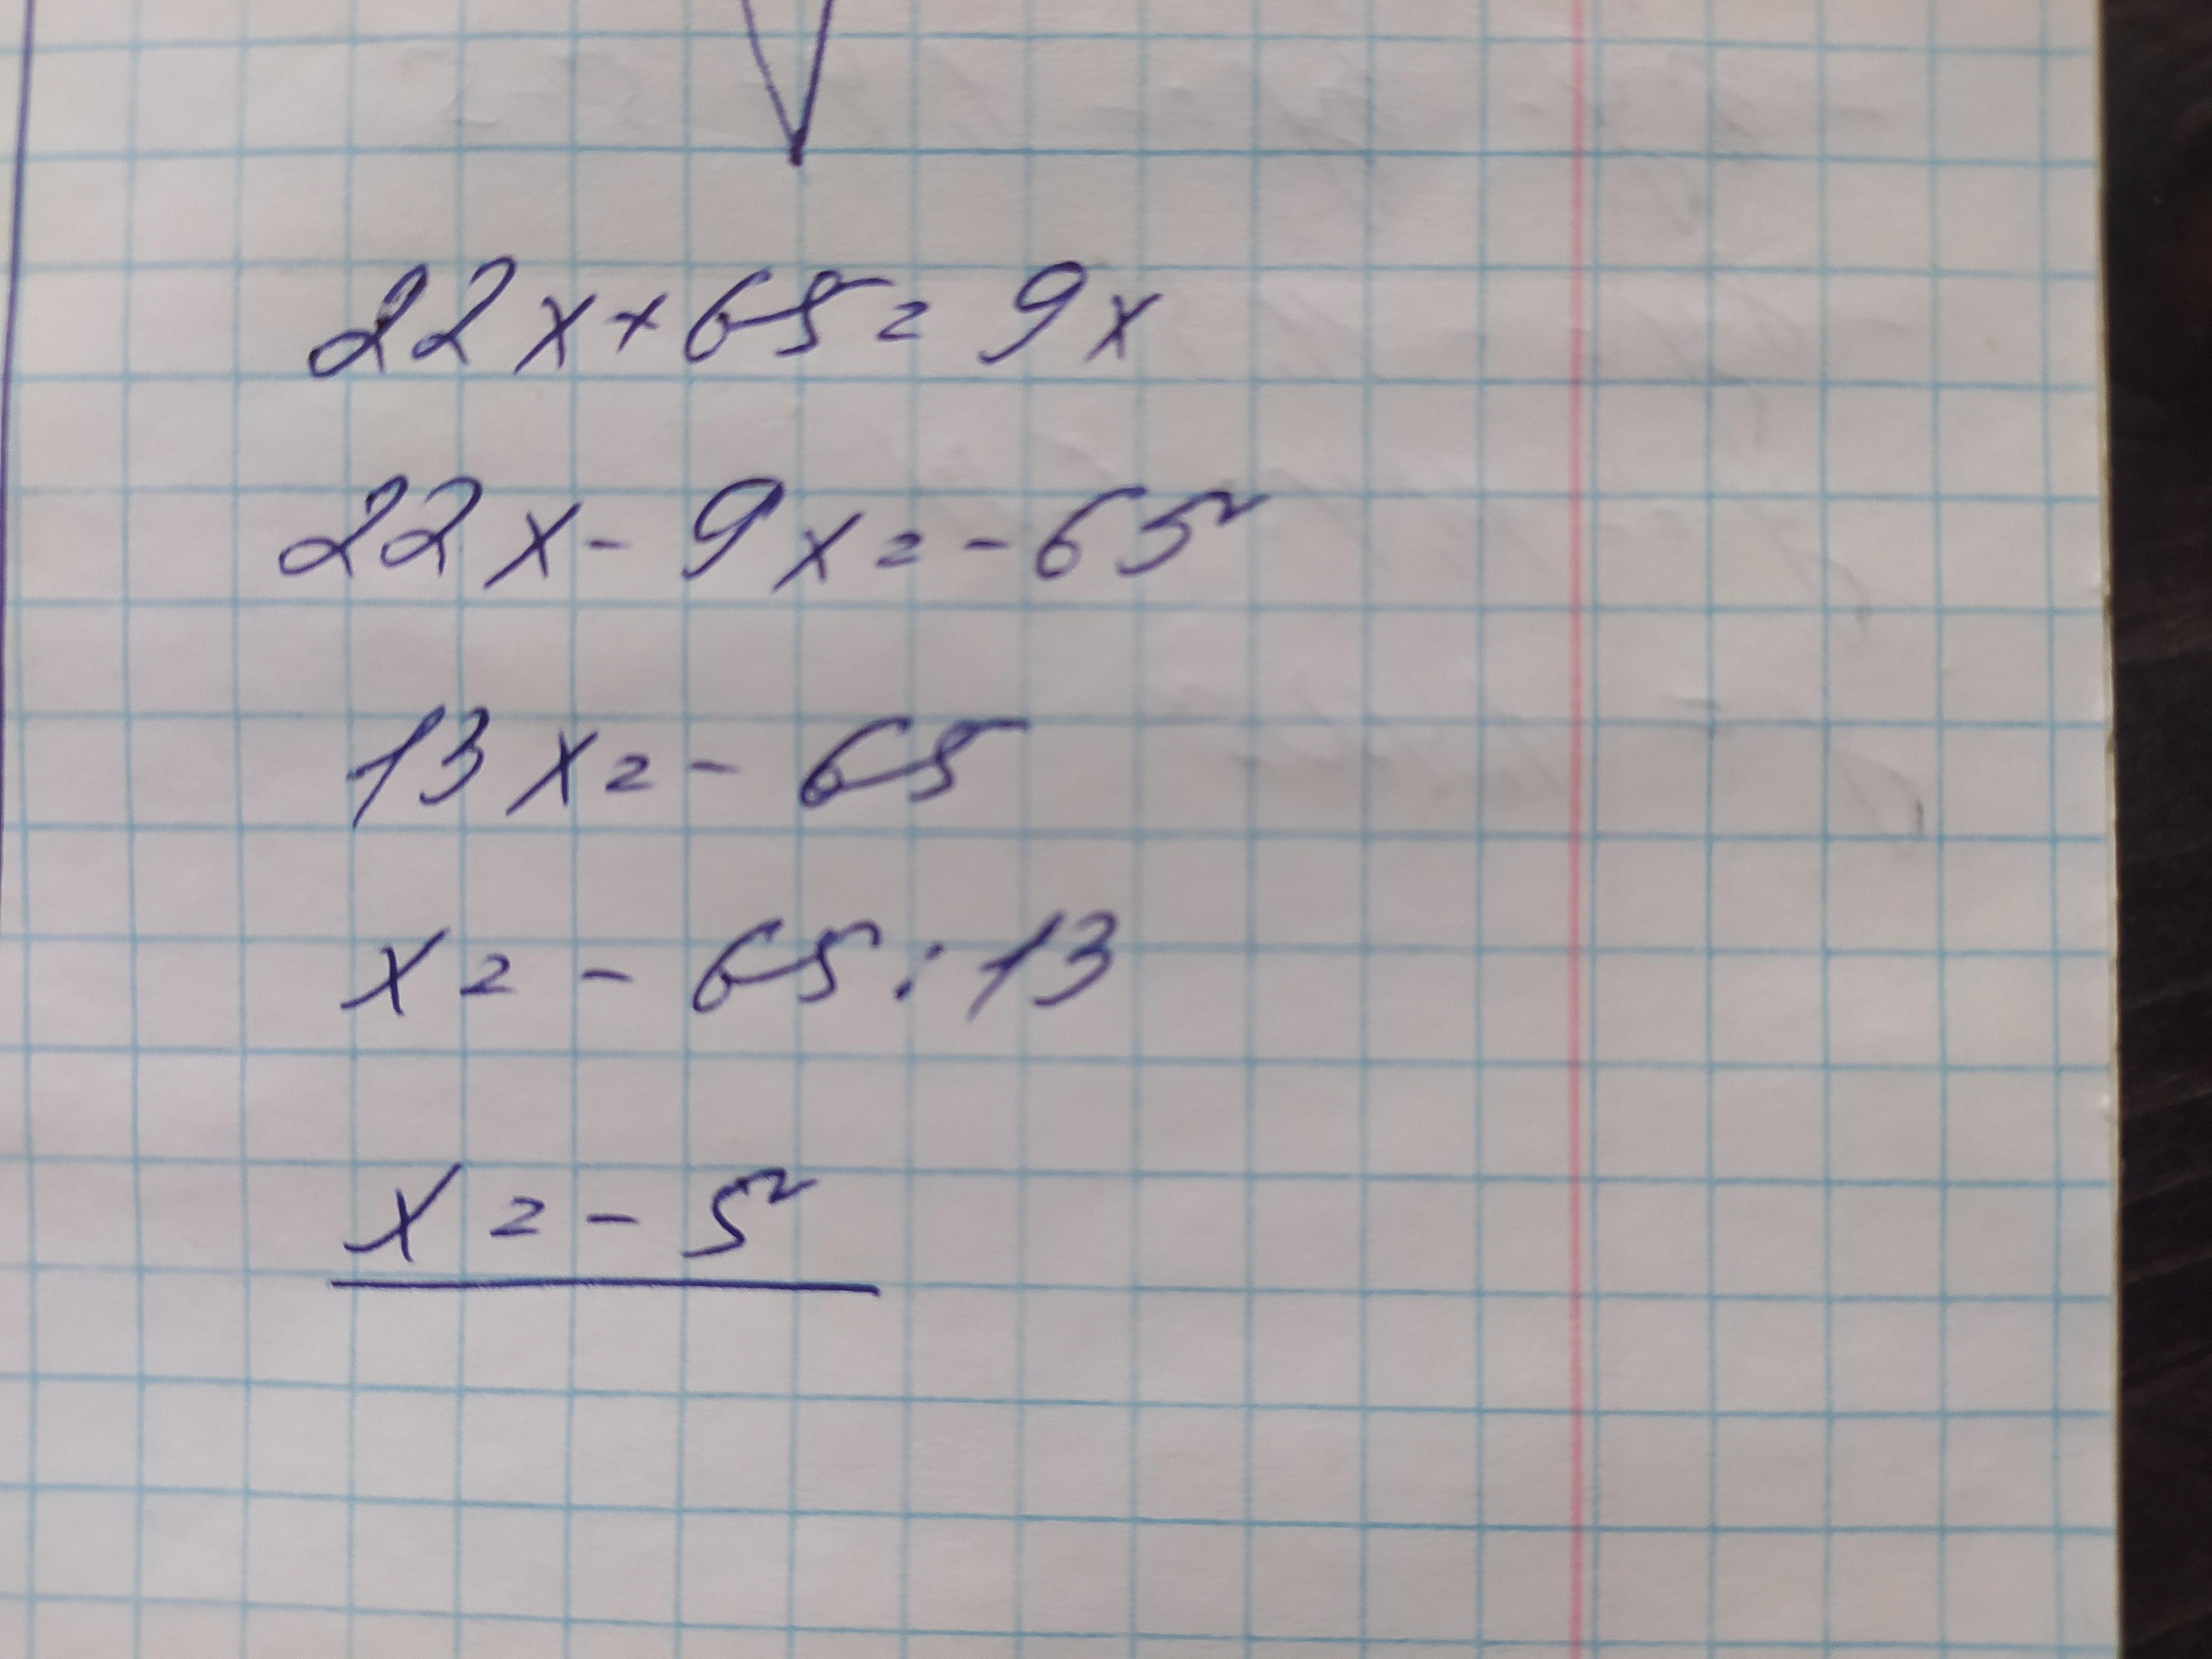 22x+65=9x
22x-9x=-65
13x=-65
x=-65:13
x=-5